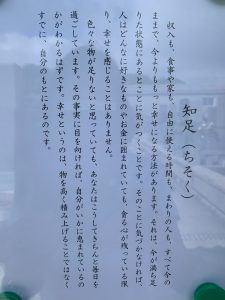 知足(ちそく)
収入も、食事や家も、自由に使える時間も、まわりの人も、すべて今の
ままで、今よりももっと幸せになる方法があります。それは、今が満ち足
りた状態にあることに気がつくことです。そのことに気づかなければ、
人はどんなに好きなものやお金に囲まれていても、貪る心が残っている限
り、幸せを感じることはありません。
色々な物が足りないと思っていても、あなたはこうしてきちんと毎日を
過ごしています。その事実に目を向ければ、自分がいかに恵まれているの
かがわかるはずです。幸せというのは、物を高く積み上げることではなく
すでに、自分のもとにあるのです。